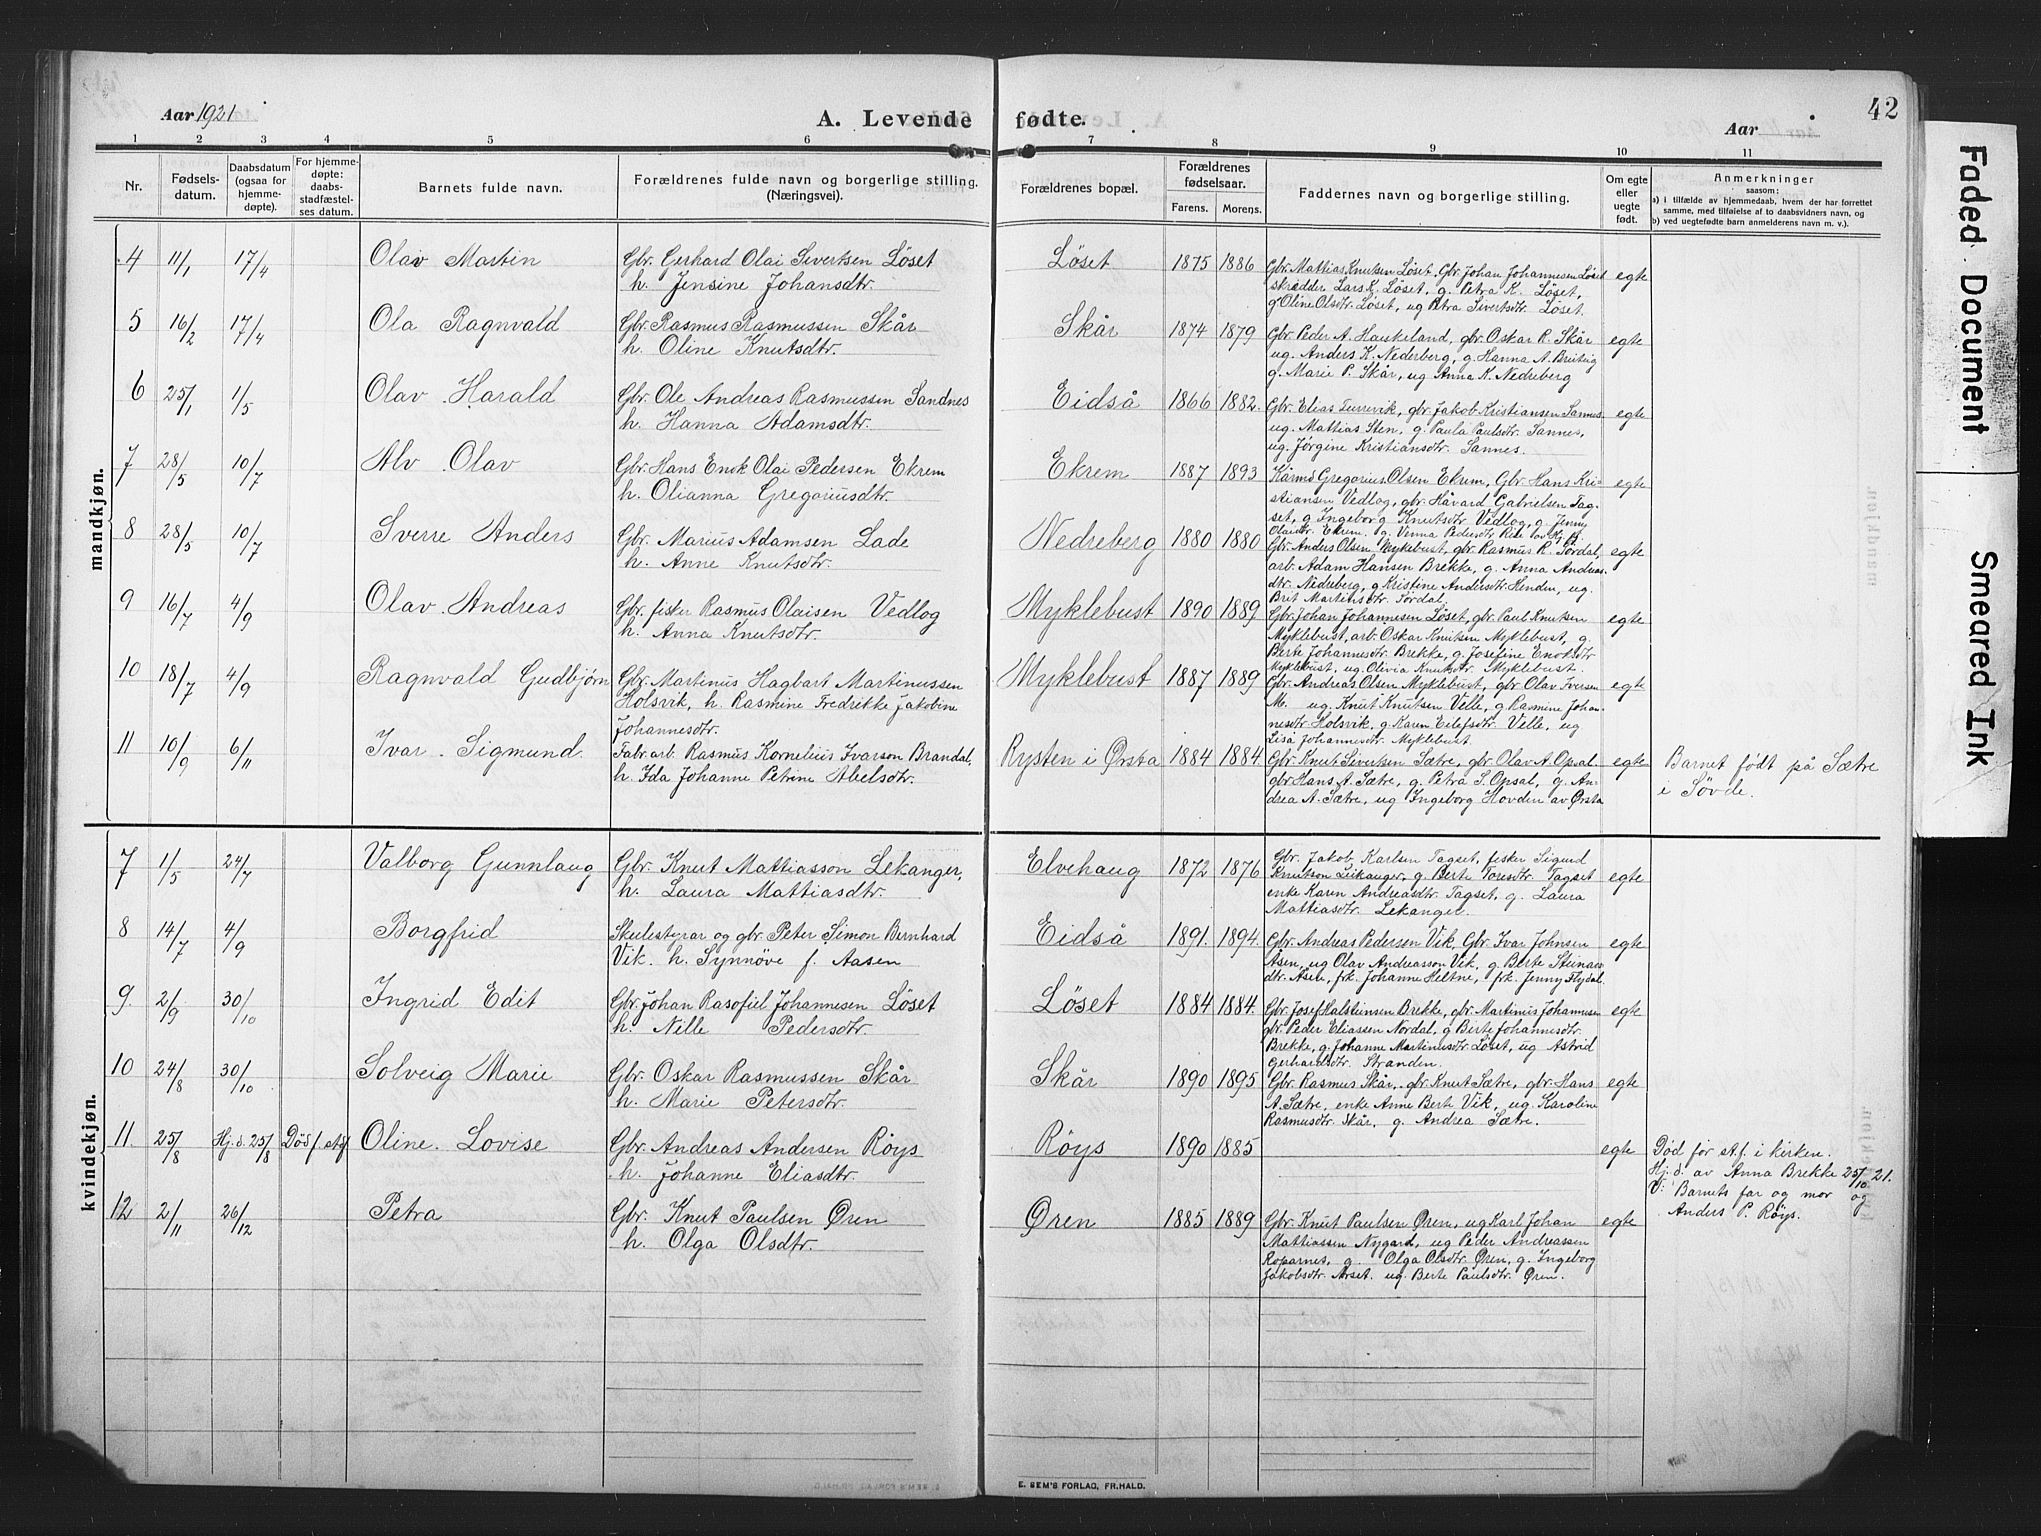 42
Aar 1921
A. Levende fødte.
Aar
1 2 3 4 5 6 7 8 9 10 11
Nr.
Fødsels-
datum.
Daabsdatum
(ogsaa for
hjemme-
døpte).
For hjemme-
døpte:
daabs-
stadfæstel-
ses datum.
Barnets fulde navn.
Forældrenes fulde navn og borgerlige stilling.
(Næringsvei).
Forældrenes bopæl.
Forældrenes
fødselsaar.
Farens. Morens.
Faddernes navn og borgerlige stilling.
Om egte
eller
uegte
født.
Anmerkninger
saasom:
a) i tilfælde av hjemmedaab, hvem der har forrettet
samme, med tilføielse av to daabsvidners navn, og
b) ved uegtefødte barn anmelderens navn m. v.).
mandkjøn.
4 11/1 17/4 Olav Martin
Gbr. Gerhard Olai Sivertsen Løset
h. Jensine Johansdtr.
Løset 1875 1886
Gbr. Mattias Knutsen Løset. Gbr. Johan Johannesen Løset
skrædder Lars K. Løset, g. Petra K. Løset,
g. Oline Olsdtr. Løset, ug Petra Sivertsdtr. Løset.
egte
5 16/2 17/4 Ola Ragnvald
Gbr. Rasmus Rasmussen Skår
h. Oline Knutsdtr.
Skår 1874 1879
Gbr. Peder A. Haukeland, gbr. Oskar R. Skår
ug. Anders K. Nederberg, g. Hanna A.
g. Marie P. Skår, ug Anna K. Nedreberg
egte
6 25/1 1/5 Olav Harald
Gbr. Ole Andreas Rasmussen Sandnes
h. Hanna Adamsdtr.
Eidså 1866 1882.
Gbr. Elias Turrevik, gbr. Jakob Kristiansen Sannes
ug. Mattias Sten, g. Paula Paulsdtr. Sannes,
ug. Jørgine Kristiansdtr. Sannes.
egte
7 28/5 10/7 Alv Olav
Gbr. Hans Enok Olai Pedersen Ekrem
h. Olianna Gregoriusdtr.
Ekrem 1887 1893
Kårmd Gregorius Olsen Ekrem, Gbr. Hans Kri-
stiansen Vedlog, gbr. Håvard Gabrielsen Tag-
set, g. Ingeborg Knutsdtr. Vedlog, g. Jenny
Olaidtr. Ekrem
egte
8 28/5 10/7 Sverre Anders
Gbr. Marius Adamsen Lade
h. Anne Knutsdtr.
Nedreberg 1880 1880
Gbr. Anders Olsen Myklebust, gbr. Rasmus R. Sørdal,
arb. Adam Hansen Brekke, g. Anna Andreas-
dtr. Nedreberg, g. Kristine Andersdtr. Henden, ug.
Brit Martinsdtr. Sørdal.
egte
9 16/7 4/9 Olav Andreas
Gbr. fisker Rasmus Olaisen Vedlog
h. Anna Knutsdtr.
Myklebust 1890 1889
Gbr. Johan Johannesen Løset, gbr. Paul Knutsen
Myklebust, arb. Oskar Knutsen Myklebust, g.
Berte Johannesdtr. Brekke, g. Josefine Enoksdtr
Myklebust, ug. Olivia Knutsdtr. Myklebust.
egte
10 18/7 4/9 Ragnvald Gudbjørn
Gbr. Martinus Hagbart Martinussen
Holsvik, h. Rasmine Fredrikke Jakobine
Johannesdtr.
Myklebust 1887 1889
Gbr. Andreas Olsen Myklebust, gbr Olav Iversen
M. ug Knut Knutsen Velle, g Rasmine Johan-
nesdtr Holsvik, g. Karen Eilefsdtr. Velle, ug
Lisa Johannesdtr. Myklebust.
egte
11 10/9 6/11 Ivar Sigmund.
Fabr. arb. Rasmus Kornelius Ivarson Brandal,
h. Ida Johanne Petrine Abelsdtr.
Rysten i Ørsta 1884 1884.
Gbr. Knut Sivertsen Sætre, gbr. Olav A. Opsal
gbr Hans A. Sætre, g. Petra S. Opsal, g. An-
drea A. Sætre, ug Ingeborg Hovden av Ørsta
egte
Barnet født på Sætre
i Søvde.
kvindekjøn.
7 1/5 24/7 Valborg Gunnlaug
Gbr. Knut Mattiasson Lekanger,
h. Laura Mattiasdtr.
Elvehaug 1872 1876
Gbr. Jakob Karlsen Tagset, fisker Sigurd
Knutson Leikanger, g. Berte Toresdtr. Tagset
enke Karen Andreasdtr. Tagset, g. Laura
Mattiasdtr. Lekanger.
egte
8 14/7 4/9 Borgfrid
Skulestyrar og gbr. Peter Simon Bernhard
Vik. h. Synnöve f. Aasen
Eidså 1891. 1894.
Gbr. Andreas Pedersen Vik, Gbr. Ivar Johnsen
Åsen, ug Olav Andreasson Vik, g. Berte Steinas-
dtr. Åsen, frk. Johanne Heltne, frk. Jenny Flydal.
egte
9 2/9 30/10 Ingrid Edit
Gbr. Johan Rasofiel Johannesen Löset
h. Nille Pedersdtr.
Löset 1884 1884.
Gbr. Josef Halsteinsen Brekke, gbr. Martinus Johannesen
gbr. Peder Eliassen Nordal, g Berte Johannesdtr.
Brekke, g. Johanne Martinusdtr. Löset, ug Astrid
Gerhardsdtr. Stranden.
egte
10 24/8 30/10 Solveig Marie
Gbr. Oskar Rasmussen Skår
h. Marie Petersdtr.
Skår 1890 1895
Gbr. Rasmus Skår, gbr. Knut Sætre, gbr. Hans
A. Sætre, enke Anne Berte Vik, ug. Karoline
Rasmusdtr. Skår, g. Andrea Sætre.
egte
11 25/8 Hj.d. 25/8 Död f. stf. Oline Lovise
Gbr. Andreas Andersen Röys
h. Johanne Eliasdtr.
Röys 1890 1885
egte
Död för st.f. i kirken.
Hj. d. av Anna Brekke 25/10 21.
V: Barnets far og mor og
Anders P. Röys.
12 2/11 26/12 Petra
Gbr. Knut Paulsen Øren
h. Olga Olsdtr.
Øren 1885 1889
Gbr. Knut Paulsen Øren, ug Karl Johan
Mattiassen Nygard, ug Peder Andreassen
Roparnes, g. Olga Olsdtr. Øren, g. Ingeborg
Jakobsdtr. Årset. ug. Berte Paulsdtr. Øren.
egte
E. SEM'S FORLAG, FR.HALD.
Faded Document
Smeared Ink